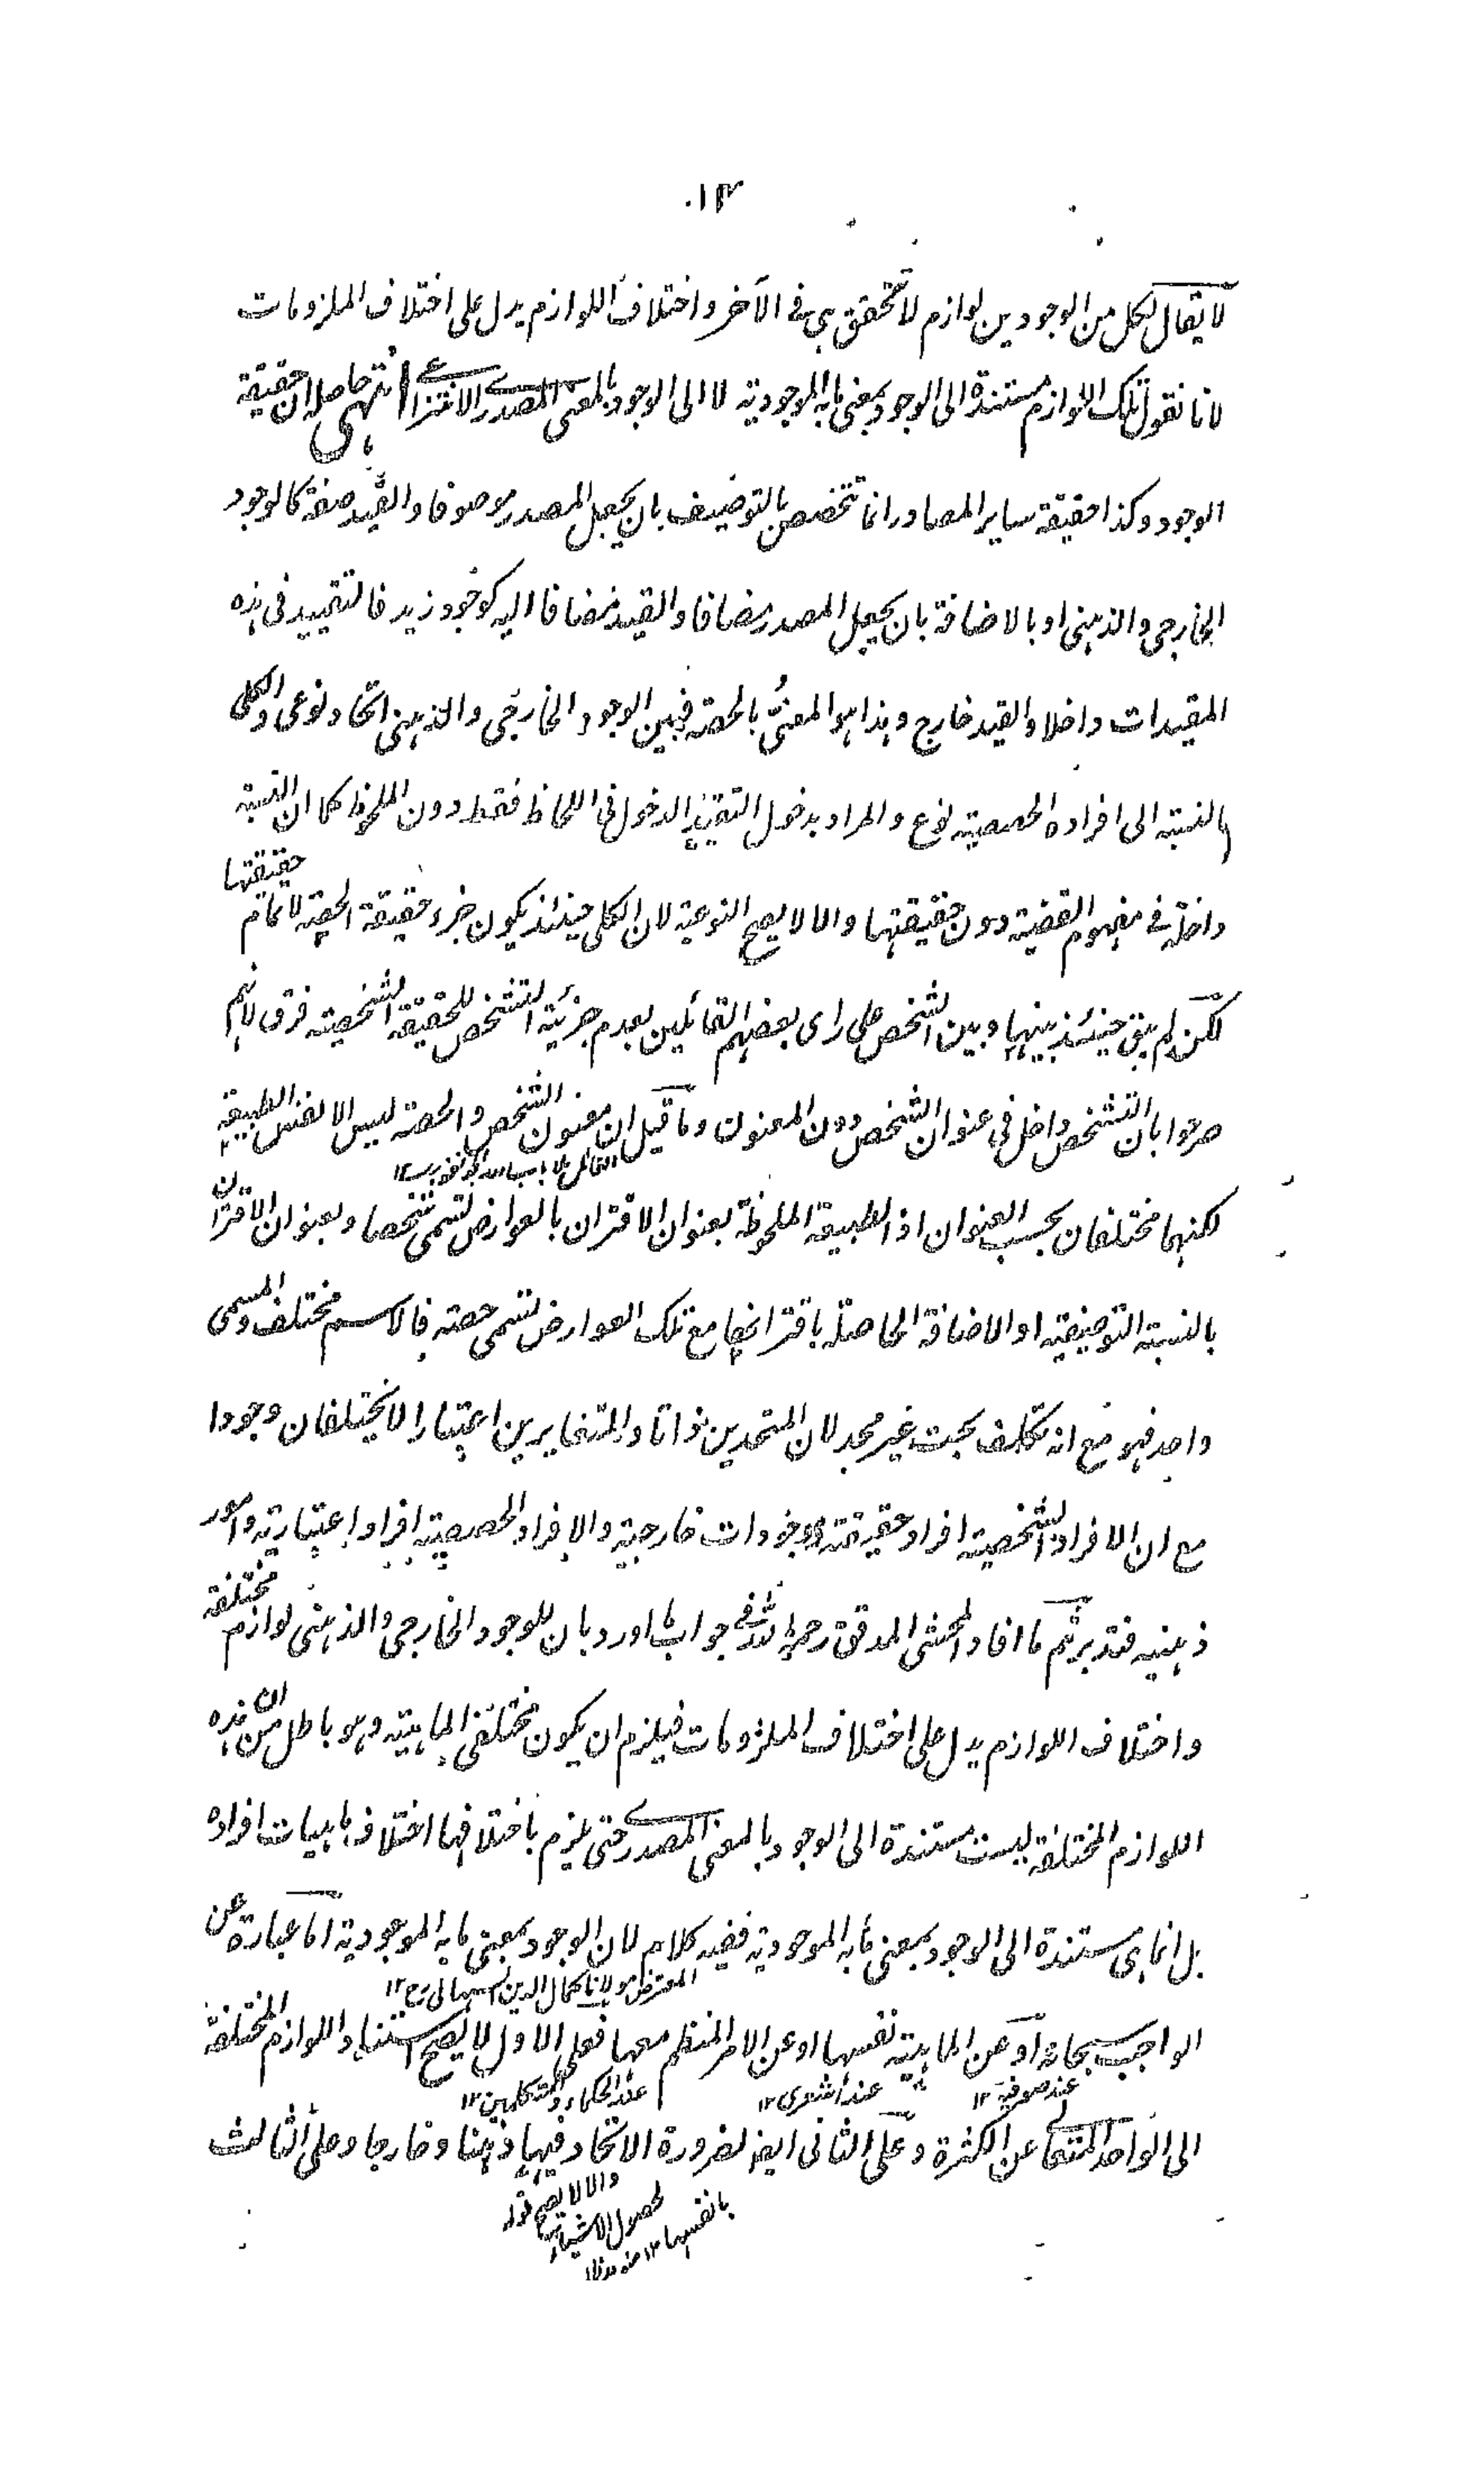 ١٣
لا يقال لكل من الوجودين لوازم لا تتحقق هى فى الآخر و اختلاف اللوازم يدل على اختلاف الملزومات
لانا نقول تلك اللوازم مستندة الى الوجود بمعنى ما به الموجودية لا الى الوجود بالمعنى المصدرے الانتزاعے انتهى حاصله ان حقيقة
الوجود و كذا حقيقة ساير المصادر انما تتخصص بالتوضيف بان يجعل المصدر موصوفا و القيد صفة كالوجود
الخارجى و الذهنى او بالاضافة بان يجعل المصدر مضافا و القيد مضافا اليه كوجود زيد فالتقييد فى هذه
المقيدات داخلا و القيد خارج و هذا هو المعنىُّ بالحصة فبين الوجود الخارجى و الذهنى اتحاد نوعى و الكلى
بالنسبة الى افراده الحصصية نوع و المراد بدخول التقييد الدخول فى اللحاظ فقط دون الملحوظ كما ان النسبة
داخلة فے مفهوم القضية دون حقيقتها و الا لا يصح النوعية لان الكلى حينئذ يكون جزء حقيقة الحصة لا تمام حقيقتها
لكن لم يبق حينئذ بينها و بين الشخص على راى بعضهم القائلين بعدم جزئية التشخص للحقيقة الشخصية فرق لانهم
صرحوا بان التشخص داخل فى عنوان الشخص دون المعنون و ما قيل ان معنون الشخص و الحصة ليس الا نفس الطبيعة
القائل ١٢
لكنهما مختلفان بحسب العنوان اذ الطبيعة الملحوظة بعنوان الاقتران بالعوارض تسمى شخصا و بعنوان الاقتران
بالنسبة التوضيفية او الاضافة الحاصلة باقترانها مع تلك العوارض تسمى حصة فالاسم مختلف و المسمى
واحد فهو مع انه تكلف بحت غير مجد لان المتحدين ذاتا و المتغايرين اعتبارا لا يختلفان وجودا
مع ان الافراد الشخصية افراد حقيقة موجودات خارجية و الافراد الحصصية افراد اعتبارية و امور
ذهنية فتدبر ثم ما افاد المحشى المدقق رحمه الله فے جواب ما اورد بان للوجود الخارجى و الذهنى لوازم مختلفة
و اختلاف اللوازم يدل على اختلاف الملزومات فيلزم ان يكون مختلفى الماهية و هو باطل من ان هذه
اللوازم المختلفة ليست مستندة الى الوجود بالمعنى المصدرے حتى يلزم باختلافها اختلاف ماهيات افراده
بل انما هى مستندة الى الوجود بمعنى ما به الموجودية ففيه كلام لان الوجود بمعنى ما به الموجودية اما عبارة عن
المعترض مولانا كمال الدين السهالى رح ١٢
الواجب سبحانه او عن الماهية نفسها او عن الامر المنظم معها فعلى الاول لا يصح استناد اللوازم المختلفة
عند صوفية ١٢ عند اشعرى ١٢ عند الحكماء و المتكلمين ١٢
الى الواحد المتعالے عن الكثرة و على الثانى ايضا لضرورة الاتحاد فيها ذهنا و خارجا و على الثالث
و الا لا يصح قوله
لحصول الاشياء
بانفسها ١٢ منه